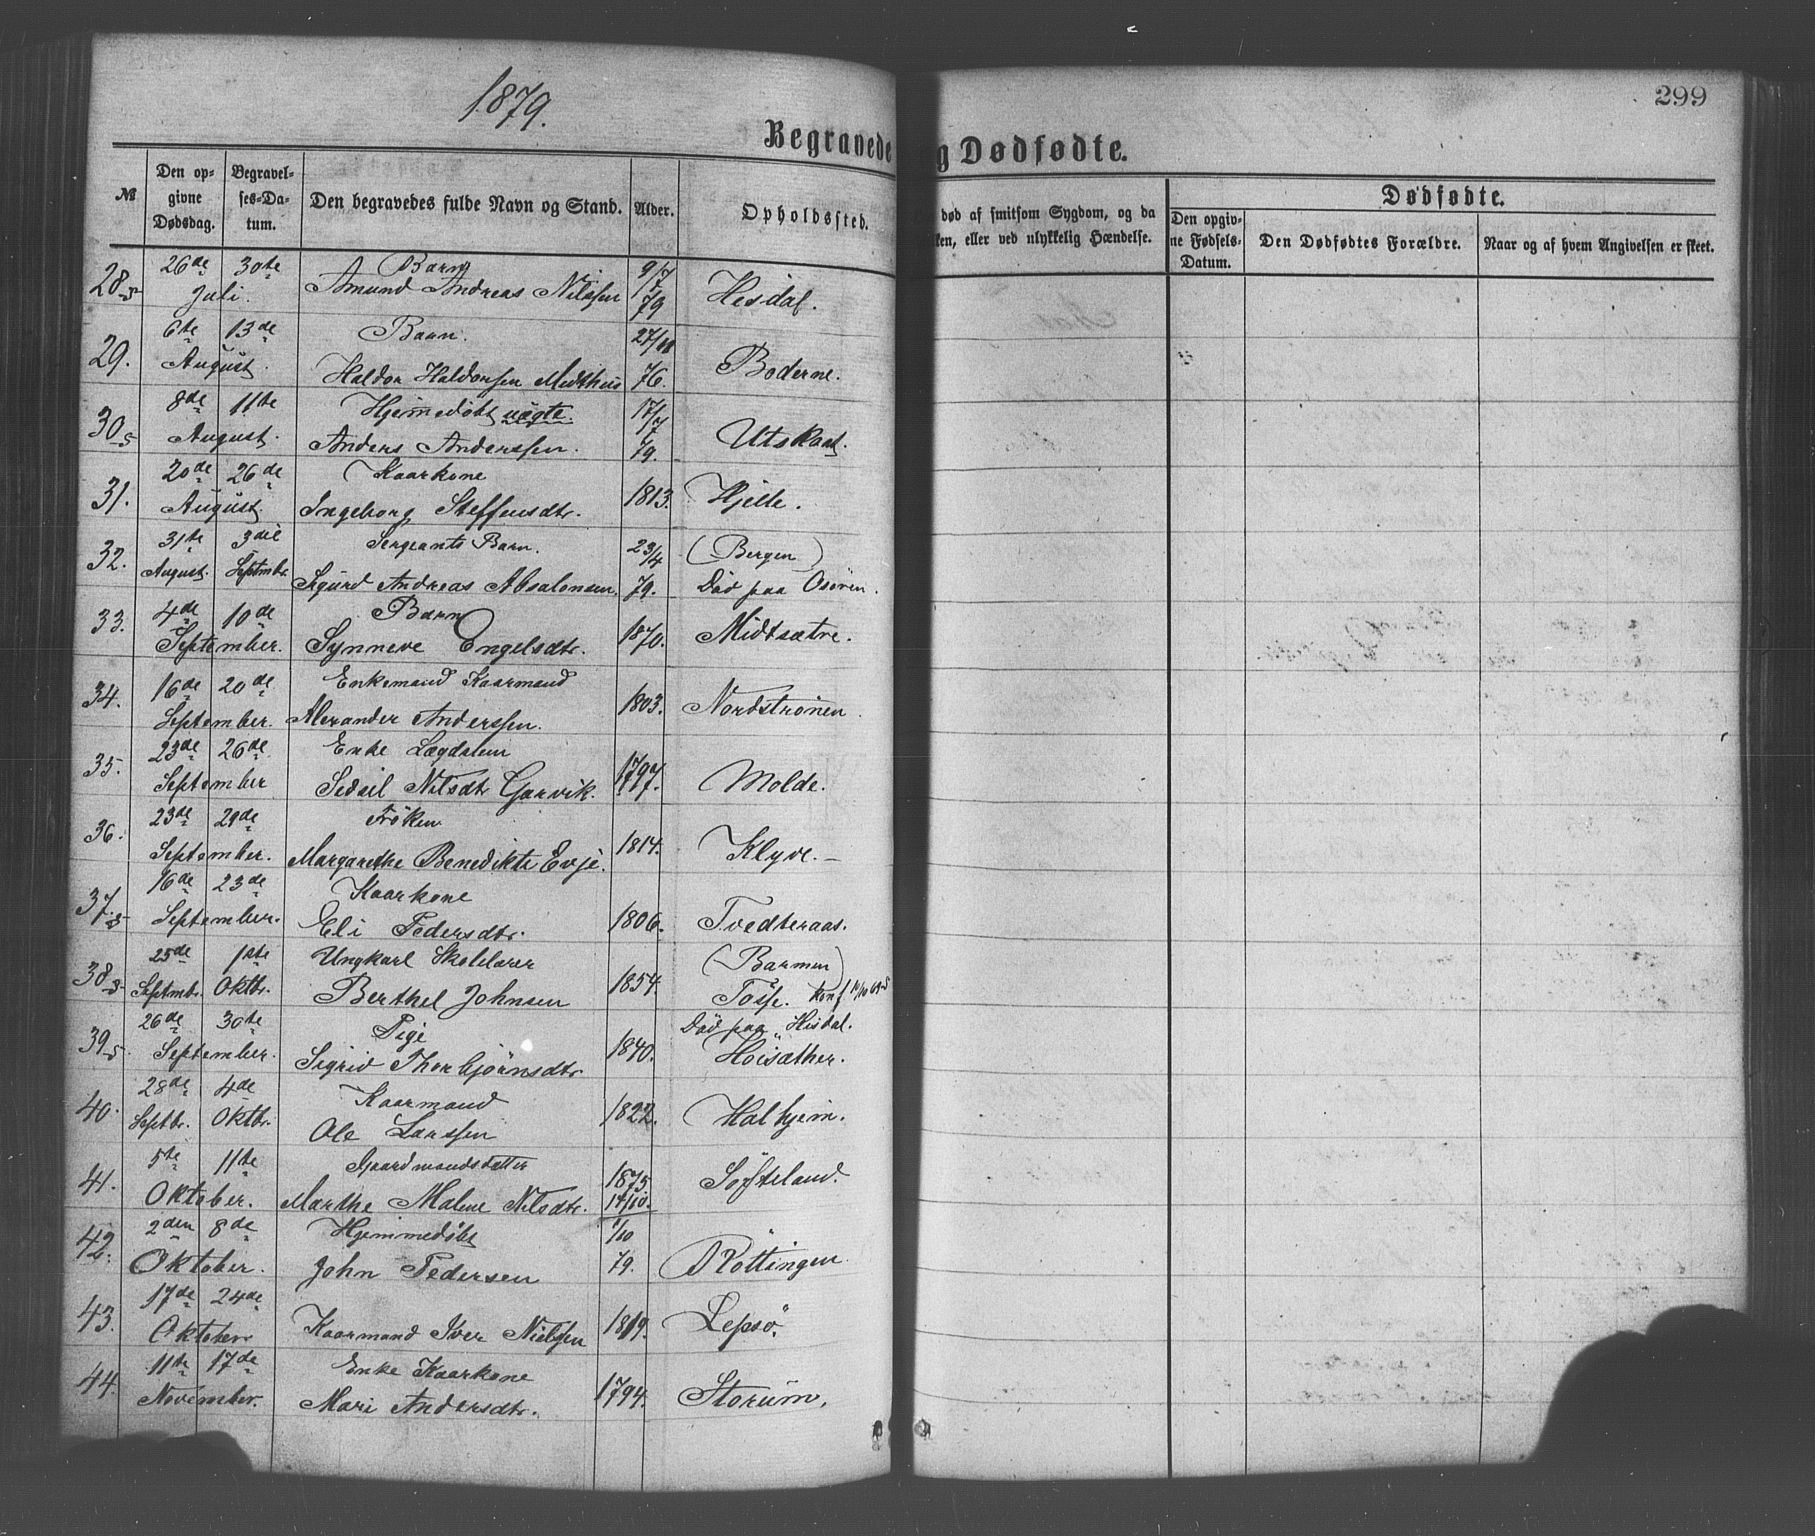 1879.
299
Begravede
g Dødfødte.
№
Den opgivne Dødsdag.
Begravelses-Datum.
Den begravedes fulde Navn og Stand.
Alder.
Opholdssted.
død af smitsom Sygdom, og da
ken, eller ved ulykkelig Hændelse.
Dødfødte.
Den opgivne Fødsels-Datum.
Den Dødfødtes Forældre.
Naar og af hvem Angivelsen er skeet.
28. 26de 30te Barn 9/7
Juli. Amund Andreas Nilssen 79 Hesdal.
29. 6te 13de Barn. 27/11
August. Haldor Haldorsen Midthus 76. Boderne.
30. 8de 11te Hjemmedøbt uægte. 17/7
August. Anders Anderssen. 79. Utskaat.
31. 20de 26de Kaarkone
August. Ingeborg Steffensdtr. 1813. Hjelle.
32. 31te 3die Sergeants Barn. 23/4 (Bergen)
August. Septmbr. Sigurd Andreas Absalonsen. 79. Död paa Osören.
33. 4de 10de Barn
September. Synneve Engelsdtr. 1870. Midtsætre.
34. 16de 20de Enkemand Kaarmand
September. Alexander Anderssen. 1803. Nordströnen.
35. 23de 26de Enke Lægdslem
September Sedsil Nilsdtr Garvik. 1797. Molde.
36. 23de 29de Fröken
September. Margarethe Benedikte Evje. 1814. Klyve.
37. 16de 23de Kaarkone
September. Eli Pedersdtr. 1806. Tvedteraas.
38. 25de 1ste Ungkarl Skolelærer (Barmen)
Septmbr. Oktbr. Berthel Johnsen 1854. Töse. Konf
39. 26de 30te Pige Död paa Hisdal.
September. Sigrid Thorbjörnsdtr 1840. Höisæther.
40. 28de 4de Kaarmand
Septbr. Oktbr. Ole Larssen 1822. Halhjem.
41. 5te 11te Gaardmandsdatter 1875
Oktober. Marthe Malene Nilsdtr. 14/10. Söfteland.
42. 2den 8de Hjemmedøbt 1/10
Oktober. John Pedersen 79. Röttingen.
43. 17de 24de
Oktober Kaarmand Iver Nielsen 1819. Lepsö.
44. 11te 17de Enke Kaarkone
November. Mari Andersdtr. 1794. Storum.